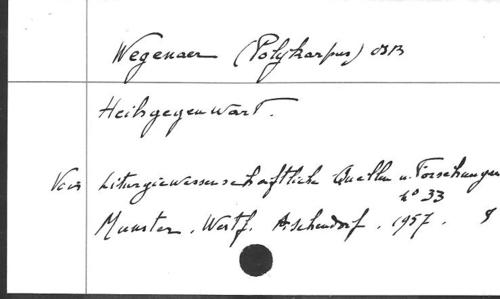 Wegenaer (Polykarpus) OSB
Heilsgegenwart.
Voir Liturgiewissenschaftliche Quellen u. Forschungen
no 33
Munster. Westf. Aschendorf. 1957. 8